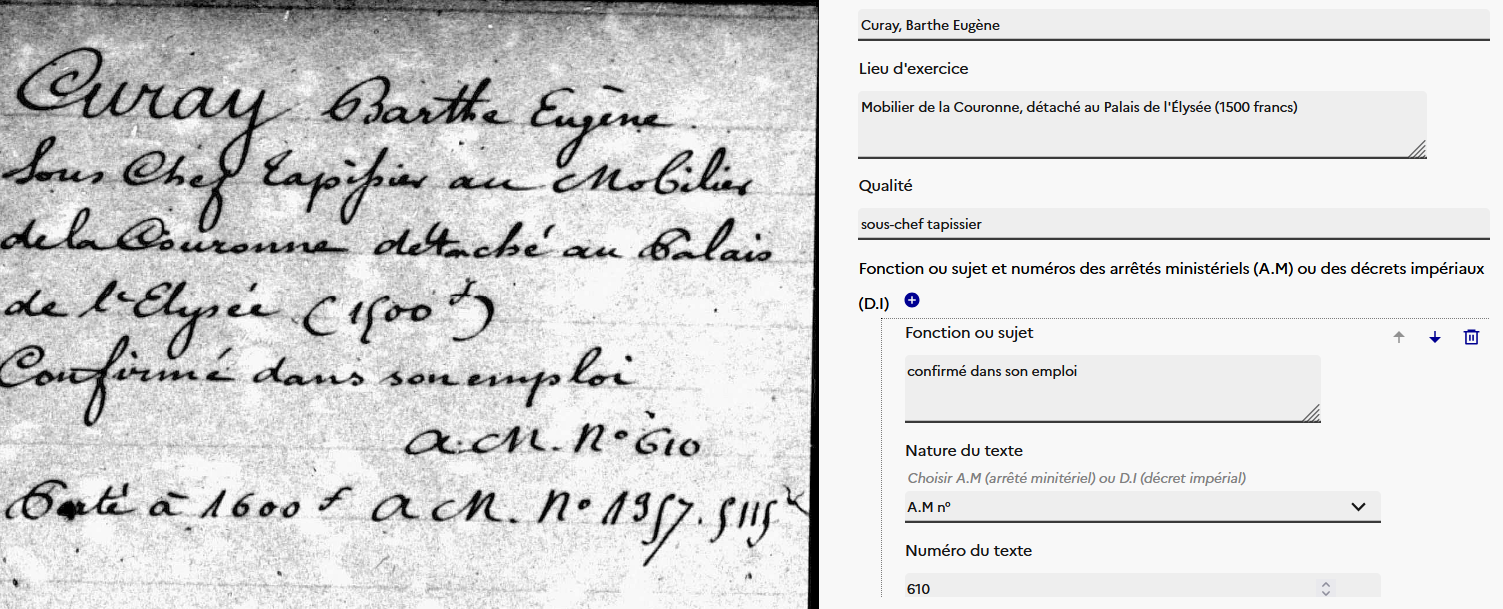 Curay Barthe Eugène
Sous Chef Tapissier au Mobilier
de la Couronne détaché au Palais
de l'Elysée (1500 f)
Confirmé dans son emploi
A. M. N° 610
Porté à 1600 f A M. N° 1357.
Curay, Barthe Eugène
Lieu d'exercice
Mobilier de la Couronne, détaché au Palais de l'Élysée (1500 francs)
Qualité
sous-chef tapissier
Fonction ou sujet et numéros des arrêtés ministériels (A.M) ou des décrets impériaux
(D.I)
Fonction ou sujet
confirmé dans son emploi
Nature du texte
Choisir A.M (arrêté minitériel) ou D.I (décret impérial)
A.M nº
Numéro du texte
610